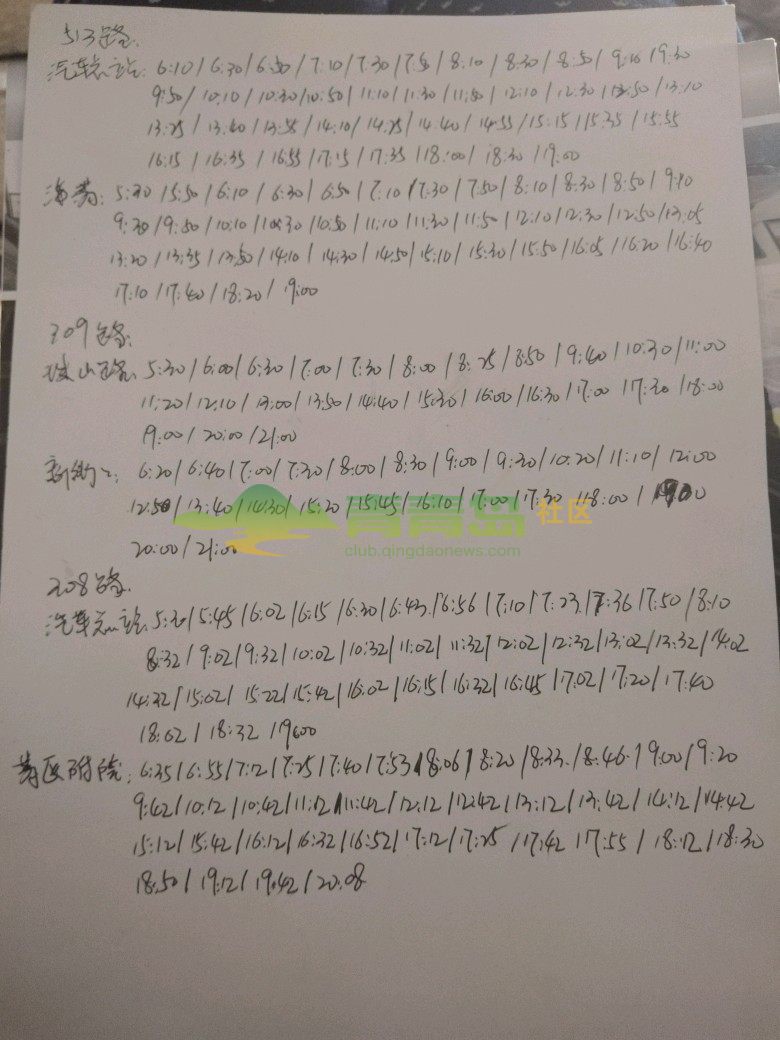 513路.
汽车总站: 6:10/6:30/6:50/7:10/7:30/7:50/8:10/8:30/8:50/9:10/9:30
9:50/10:10/10:30/10:50/11:10/11:30/11:50/12:10/12:30/12:50/13:10
13:25/13:40/13:55/14:10/14:25/14:40/14:55/15:15/15:35/15:55
16:15/16:35/16:55/17:15/17:35/18:00/18:30/19:00
5:30/5:50/6:10/6:30/6:50/7:10/7:30/7:50/8:10/8:30/8:50/9:10
9:30/9:50/10:10/10:30/10:50/11:10/11:30/11:50/12:10/12:30/12:50/13:05
13:20/13:35/13:50/14:10/14:30/14:50/15:10/15:30/15:50/16:05/16:20/16:40
17:10/17:40/18:20/19:00
309路.
山路: 5:30/6:00/6:30/7:00/7:30/8:00/8:25/8:50/9:40/10:30/11:00
11:20/12:10/13:00/13:50/14:40/15:30/16:00/16:30/17:00/17:30/18:00
19:00/20:00/21:00
6:20/6:40/7:00/7:30/8:00/8:30/9:00/9:30/10:20/11:10/12:00
12:50/13:40/14:30/15:20/15:45/16:10/17:00/17:30/18:00/1900
20:00/21:00
青青岛社区
club.qingdaonews.com
208路.
汽车总站: 5:30/5:45/6:02/6:15/6:30/6:43/6:56/7:10/7:23/7:36/7:50/8:10
8:32/9:02/9:32/10:02/10:32/11:02/11:32/12:02/12:32/13:02/13:32/14:02
14:32/15:02/15:22/15:42/16:02/16:15/16:32/16:45/17:02/17:20/17:40
18:02/18:32/1900
青医附院: 6:35/6:55/7:12/7:25/7:40/7:53/8:06/8:20/8:33/8:46/9:00/9:20
9:42/10:12/10:42/11:12/11:42/12:12/12:42/13:12/13:42/14:12/14:42
15:12/15:42/16:12/16:32/16:52/17:12/17:25/17:42 17:55/18:12/18:30
18:50/19:12/19:42/20:08